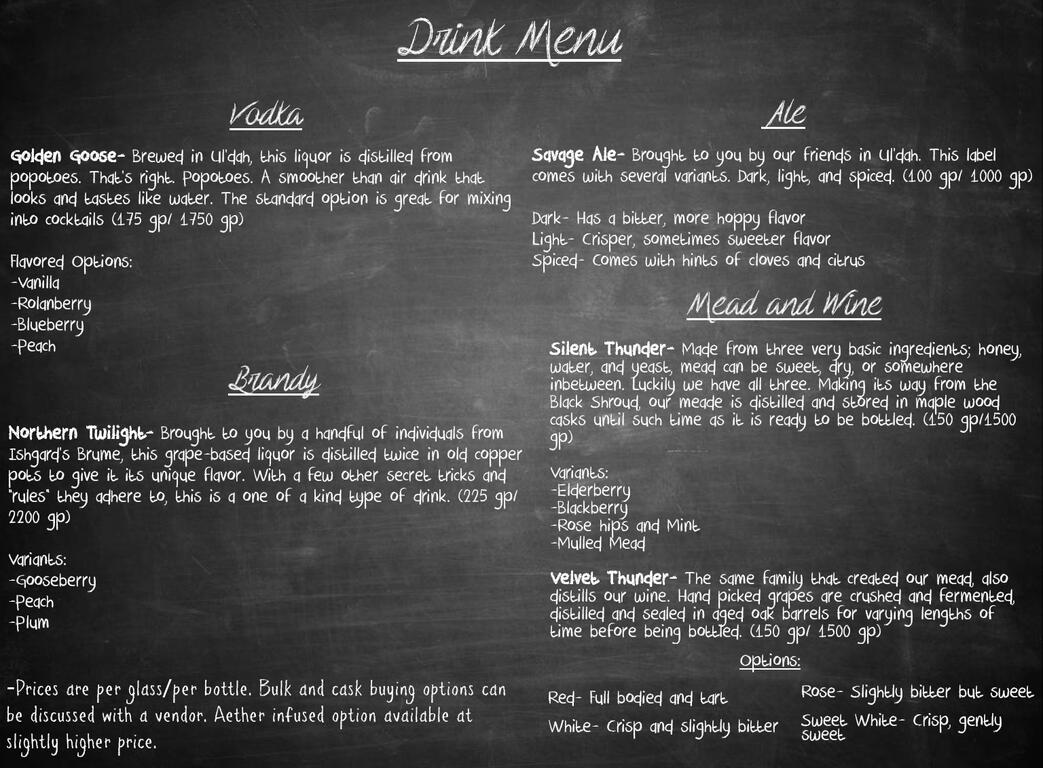 Drink Menu
Vodka
Golden Goose- Brewed in Ul'dah, this liquor is distilled from
popotoes. That's right. Popotoes. A smoother than air drink that
looks and tastes like water. The standard option is great for mixing
into cocktails (175 gp/ 1750 gp)
Flavored Options:
-Vanilla
-Rolanberry
-Blueberry
-Peach
Brandy
Northern Twilight- Brought to you by a handful of individuals from
Ishgard's Brume, this grape-based liquor is distilled twice in old copper
pots to give it its unique flavor. With a few other secret tricks and
"rules" they adhere to, this is a one of a kind type of drink. (225 gp/
2200 gp)
Variants:
-Gooseberry
-Peach
-Plum
-Prices are per glass/per bottle. Bulk and cask buying options can
be discussed with a vendor. Aether infused option available at
slightly higher price.
Ale
Savage Ale- Brought to you by our friends in Ul'dah. This label
comes with several variants. Dark, light, and spiced. (100 gp/ 1000 gp)
Dark- Has a bitter, more hoppy flavor
Light- Crisper, sometimes sweeter flavor
Spiced- Comes with hints of cloves and citrus
Mead and Wine
Silent Thunder- Made from three very basic ingredients; honey,
water, and yeast, mead can be sweet, dry, or somewhere
inbetween. Luckily we have all three. Making its way from the
Black Shroud, our meade is distilled and stored in maple wood
casks until such time as it is ready to be bottled. (150 gp/1500
gp)
Variants:
-Elderberry
-Blackberry
-Rose hips and Mint
-Mulled Mead
Velvet Thunder- The same family that created our mead, also
distills our wine. Hand picked grapes are crushed and fermented,
distilled and sealed in aged oak barrels for varying lengths of
time before being bottled. (150 gp/ 1500 gp)
Options:
Red- Full bodied and tart
White- Crisp and slightly bitter
Rose- Slightly bitter but sweet
Sweet White- Crisp, gently
sweet